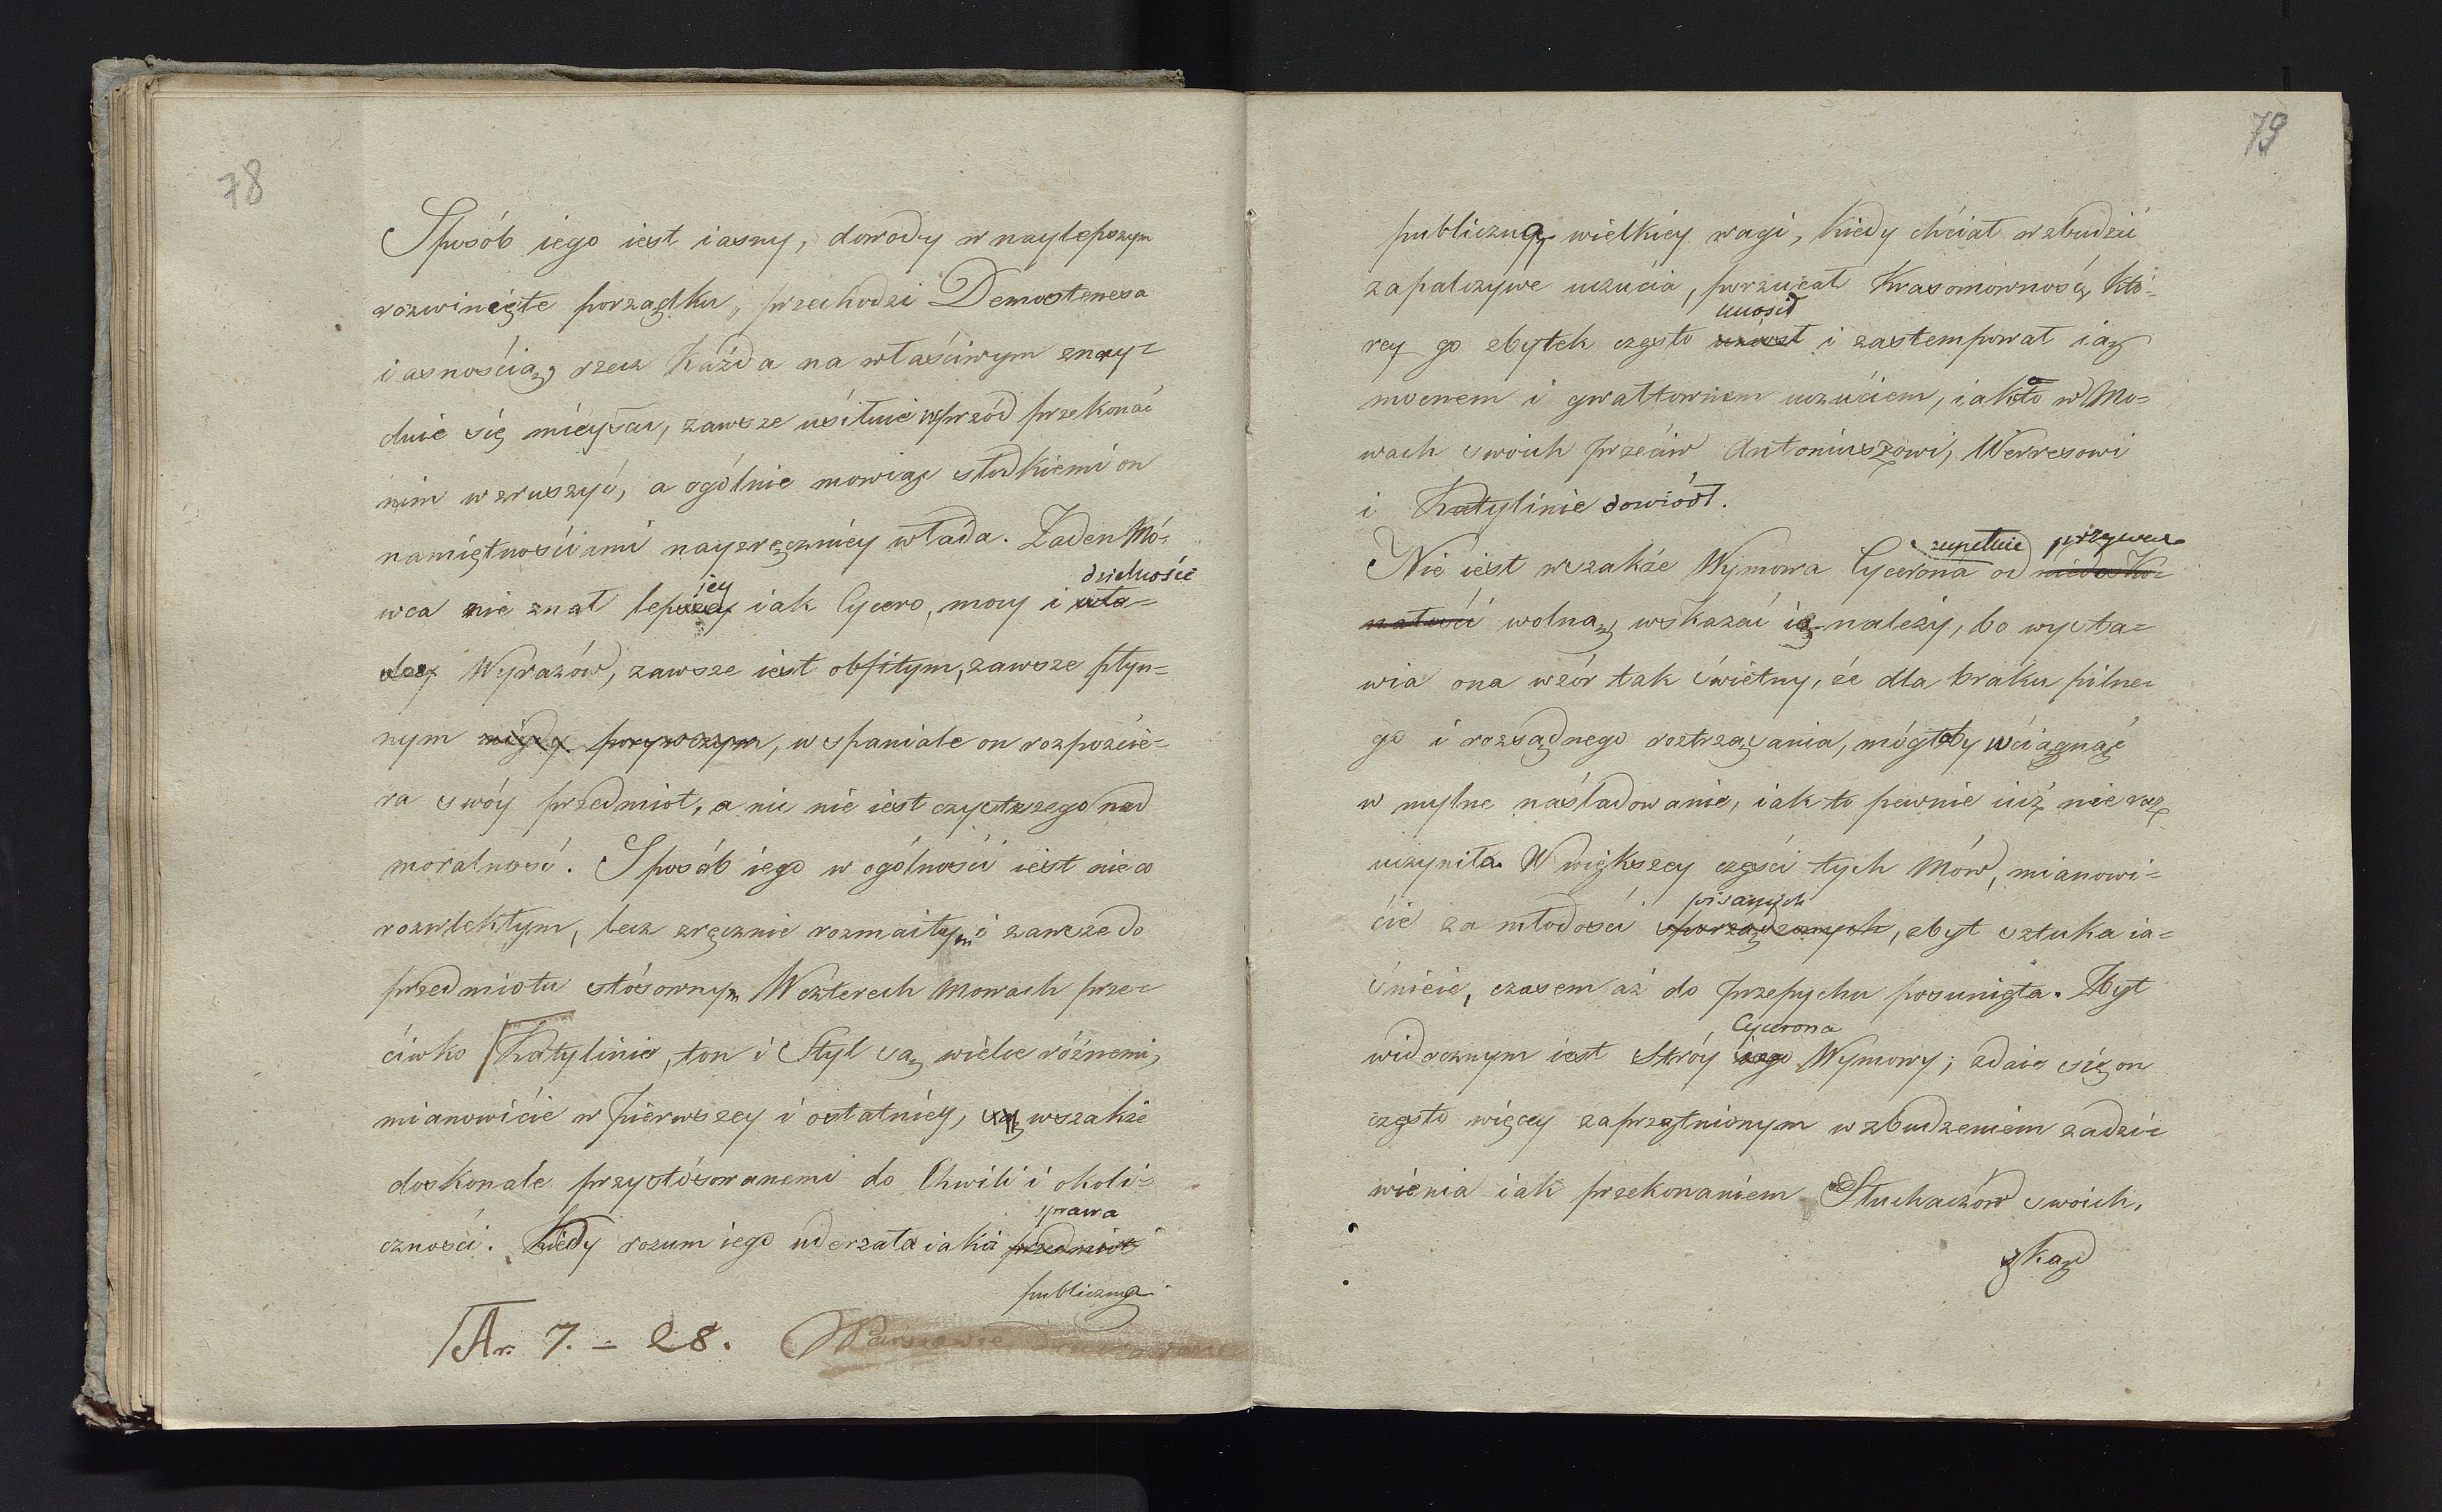 78
Sposób iego iest iasny, dowody w naylepszym
rozwinięte porządku, przechodzi Demostenesa
iasnością, rzecz każda na właściwym znay=
duie się mieyscu, zawsze usiłuie wprzód przekonać
nim wzruszyć, a ogólnie mowiąc słodkiemi on
namiętnościami nayzręczniey włada. Żaden Mó=
dzielność
wca nie znał lepiey iak Cycero, mocy i wła=
dzy Wyrazów, zawsze iest obfitym, zawsze płyn=
nym nigdy porywczym, wspaniale on rozpoście=
ra swóy przedmiot, a nic nie iest czystszego nad
moralność. Sposób iego w ogólności iest nieco
rozwlekłym, lecz zręcznie rozmaitym i zawsze do
przedmiotu stósownym. W czterech Mowach prze=
ciwko Katylinie, ton i Styl są wielce różnemi,
mianowicie w pierwszey i ostatniey, są wszakże
doskonale przystósowanemi do Chwili i okoli=
sprawa
czności. Kiedy rozum iego uderzała iaka przedmiot
publiczna
Ar. 7. = 28. Warszawie
79
publiczną wielkiey wagi, kiedy chciał wzbudzić
zapalczywe uczucia, porzucał Krasomowność, któ=
unosił
rey go zbytek często uniósł i zastempował ią
mocnem i gwałtownem uczuciem, iak to w Mo=
wach swoich przeciw Antoniuszowi, Werresowi
i Katylinie dowiódł.
zupełnie przywar
Nie iest wszakże Wymowa Cycerona od niedosko=
nałości wolną, wskazać ią należy, bo wysta=
wia ona wzór tak świetny, że dla braku pilne=
go i rozsądnego roztrząsania, mógłby wciągnąć
w mylne naśladowanie, iak to pewnie iuż nie raz
uczyniła. W większey części tych Mów, mianowi=
pisanych
cie za młodości sporządzonych, zbyt sztuka ia=
śnieie, czasem aż do przepychu posunięta. Zbyt
Cycerona
widocznym iest Stróy iego Wymowy; zdaie się on
często więcey zaprzątnionym wzbudzeniem zadzi=
wienia iak przekonaniem Słuchaczów swoich,
zkąd